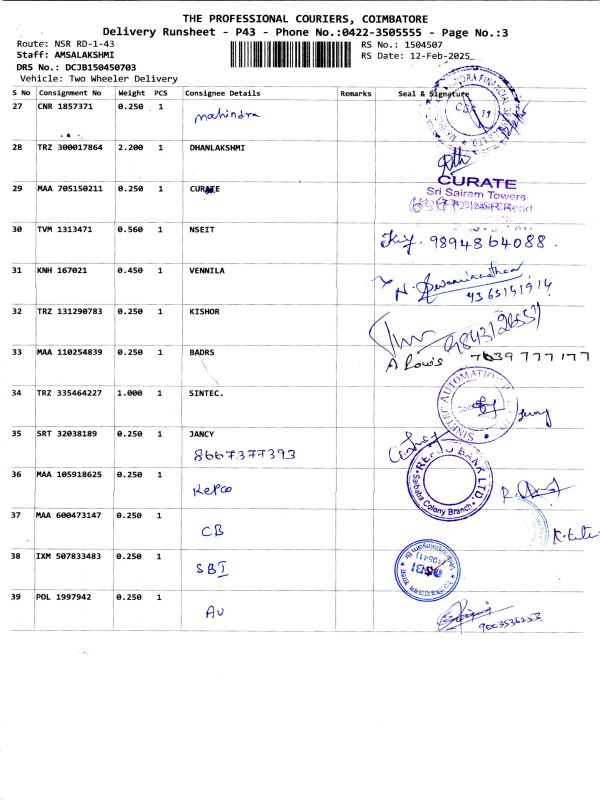 THE PROFESSIONAL COURIERS, COIMBATORE
Delivery Runsheet - P43 - Phone No.:0422-3505555 - Page No.:3
Route: NSR RD-1-43 RS No.: 1504507
Staff: AMSALAKSHMI RS Date: 12-Feb-2025
DRS No.: DCJB150450703
Vehicle: Two Wheeler Delivery
S No Consignment No Weight PCS Consignee Details Remarks Seal & Signature
27 CNR 1857371 0.250 1 mahindra
28 TRZ 300017864 2.200 1 DHANLAKSHMI
29 MAA 705150211 0.250 1 CURATE CURATE
Sri Sairam Towers
30 TVM 1313471 0.560 1 NSEIT 9894864088.
31 KNH 167021 0.450 1 VENNILA
32 TRZ 131290783 0.250 1 KISHOR
33 MAA 110254839 0.250 1 BADRS 7639 777177
34 TRZ 335464227 1.000 1 SINTEC.
35 SRT 32038189 0.250 1 JANCY
8667377393
36 MAA 105918625 0.250 1 Repco REPCO BANK LTD. Saibaba Colony Branch
37 MAA 600473147 0.250 1 CB
38 IXM 507833483 0.250 1 SBI SBI
39 POL 1997942 0.250 1 AU
9003536253